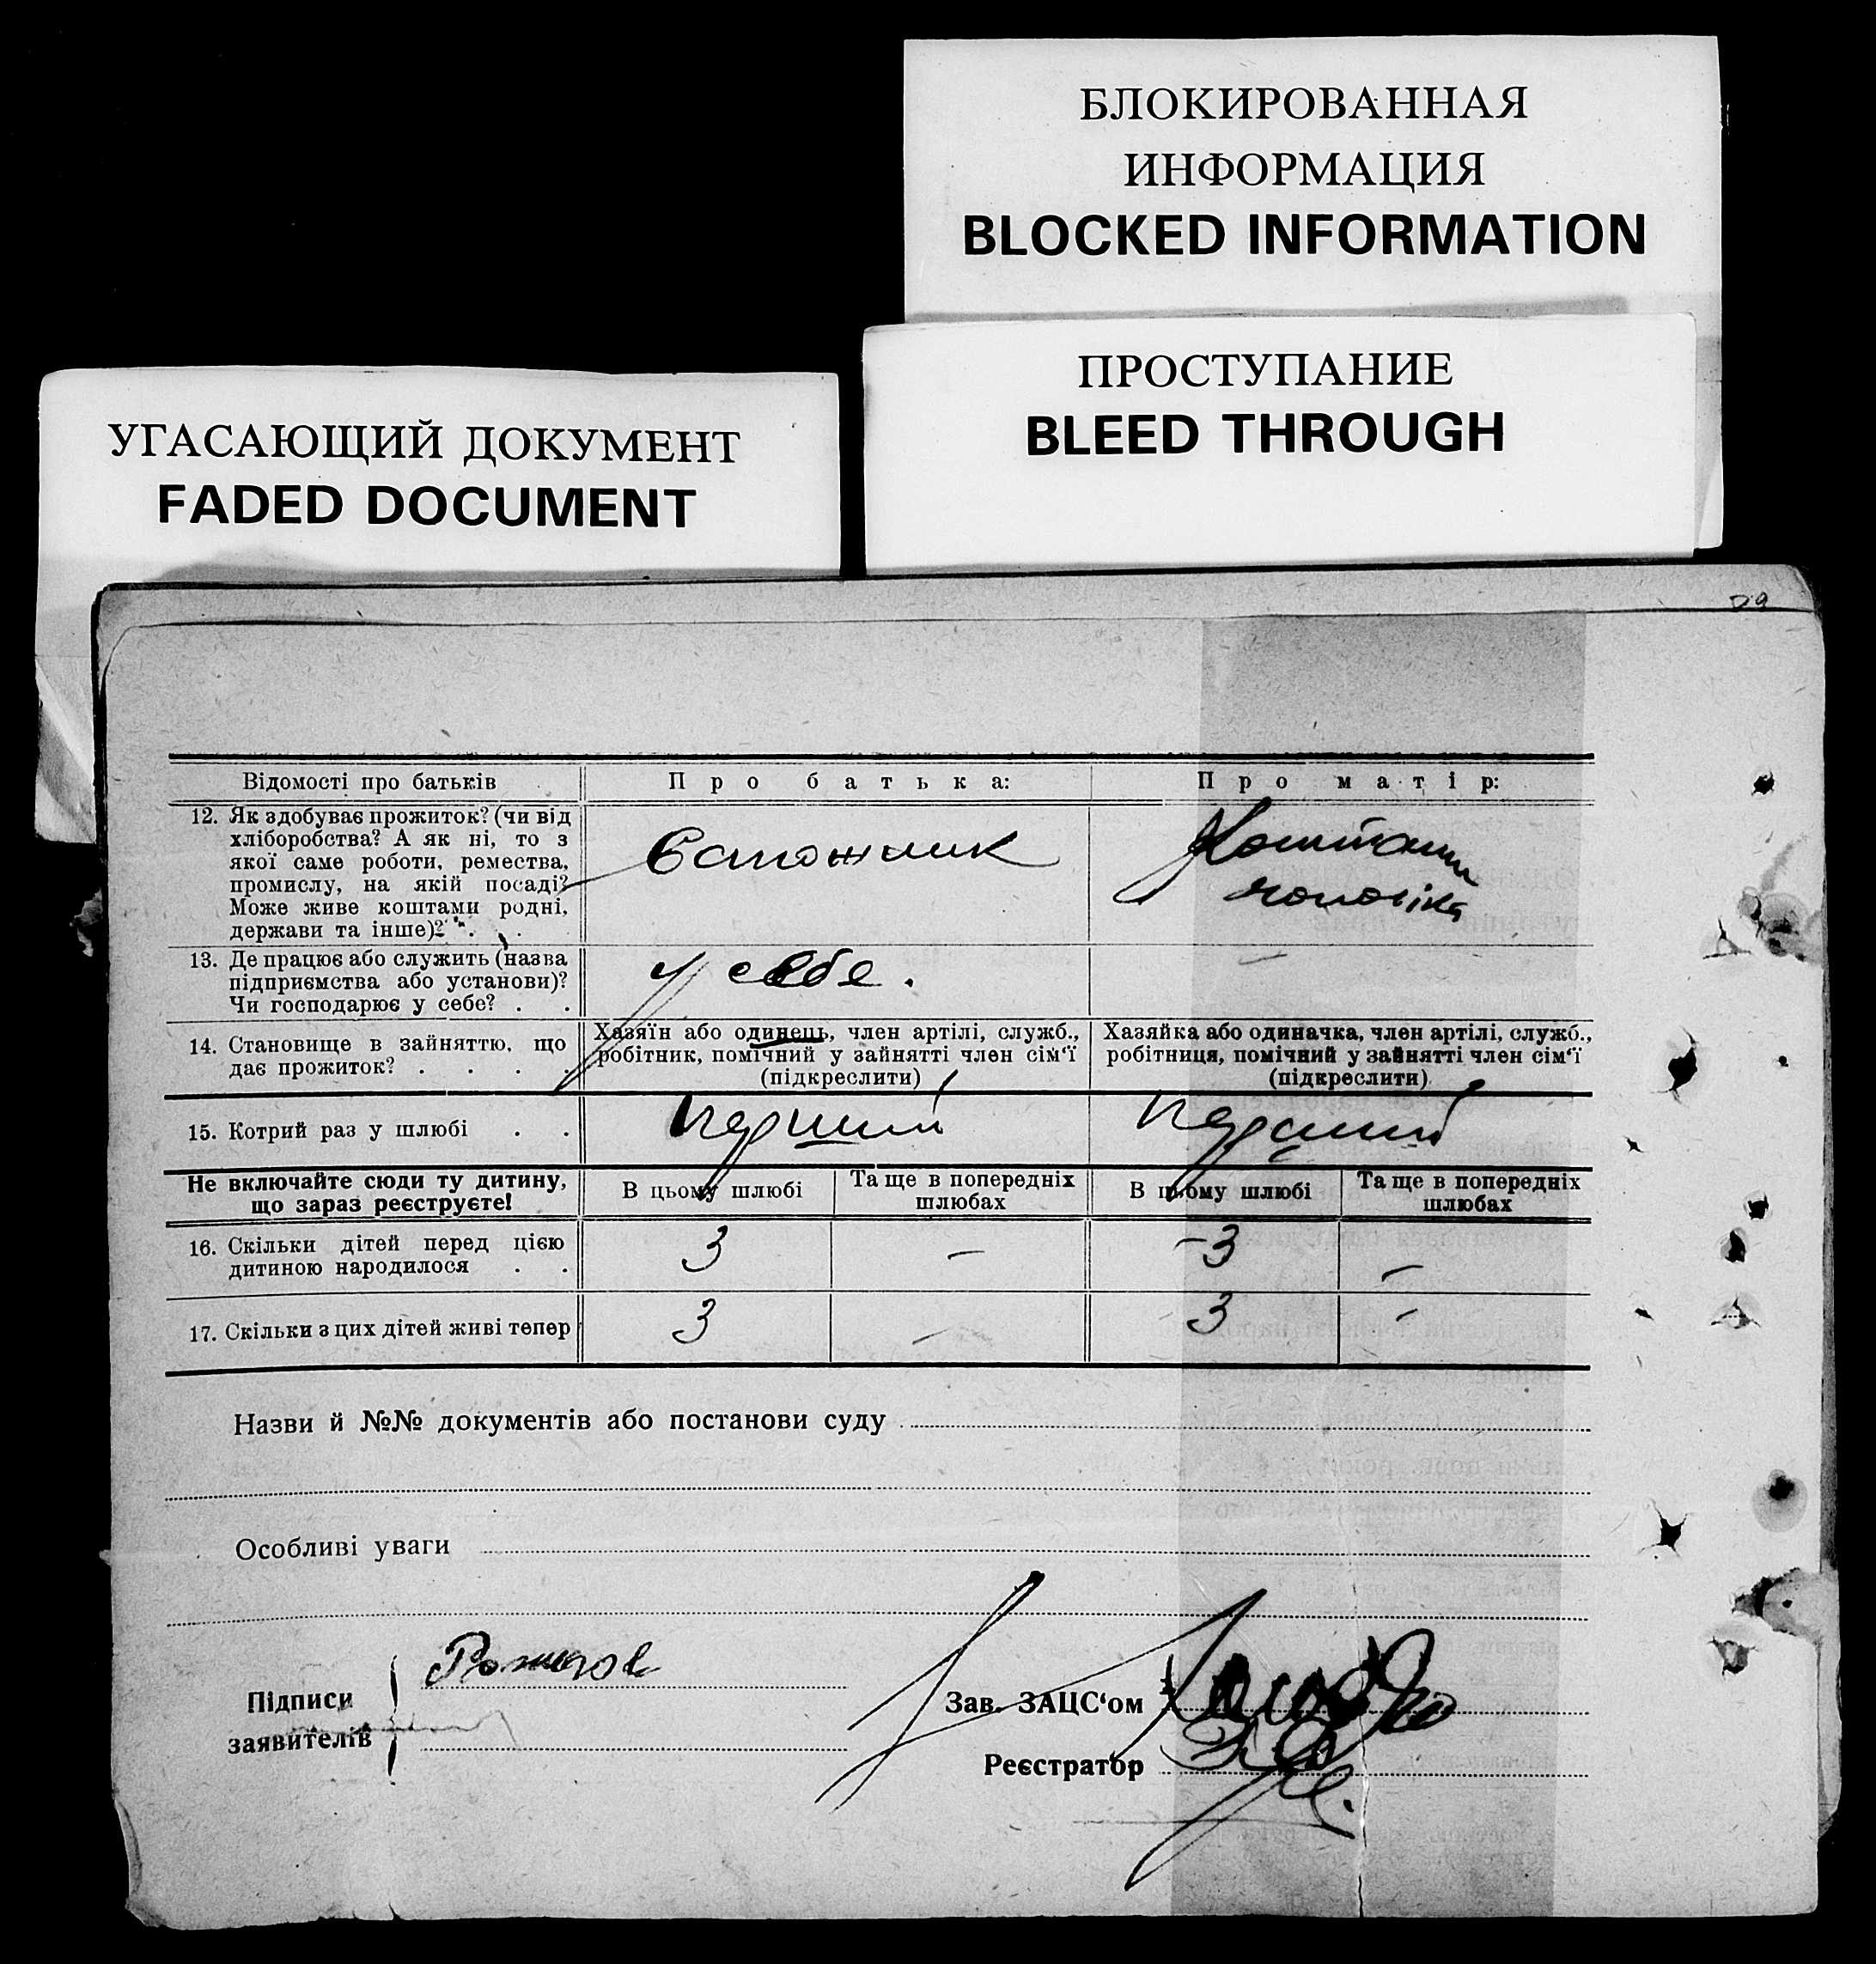 БЛОКИРОВАННАЯ
ИНФОРМАЦИЯ
BLOCKED INFORMATION
ПРОСТУПАНИЕ
BLEED THROUGH
УГАСАЮЩИЙ ДОКУМЕНТ
FADED DOCUMENT
Відомості про батьків
Про батька:
Про матір:
12. Як здобуває прожиток? (чи від
хліборобства? А як ні, то з
якої саме роботи, ремества,
промислу, на якій посаді?
Може живе коштами родні,
держави та інше)? . .
Сапожник
Коштами
чоловіка
13. Де працює або служить (назва
підприємства або установи)?
Чи господарює у себе? . .
у себе.
—
14. Становище в зайняттю, що
дає прожиток? . . . .
Хазяїн або одинець, член артілі, служб.,
робітник, помічний у зайнятті член сім'ї
(підкреслити)
Хазяйка або одиначка, член артілі, служб.,
робітниця, помічний у зайнятті член сім'ї
(підкреслити)
15. Котрий раз у шлюбі . .
перший
перший
Не включайте сюди ту дитину,
що зараз реєструєте!
В цьому шлюбі
Та ще в попередніх
шлюбах
В цьому шлюбі
Та ще в попередніх
шлюбах
16. Скільки дітей перед цією
дитиною народилося . .
3
—
-3
—
17. Скільки з цих дітей живі тепер
3
—
3
-
Назви й №№ документів або постанови суду
Особливі уваги
Підписи
заявителів
Зав. ЗАЦС'ом
Реєстратор